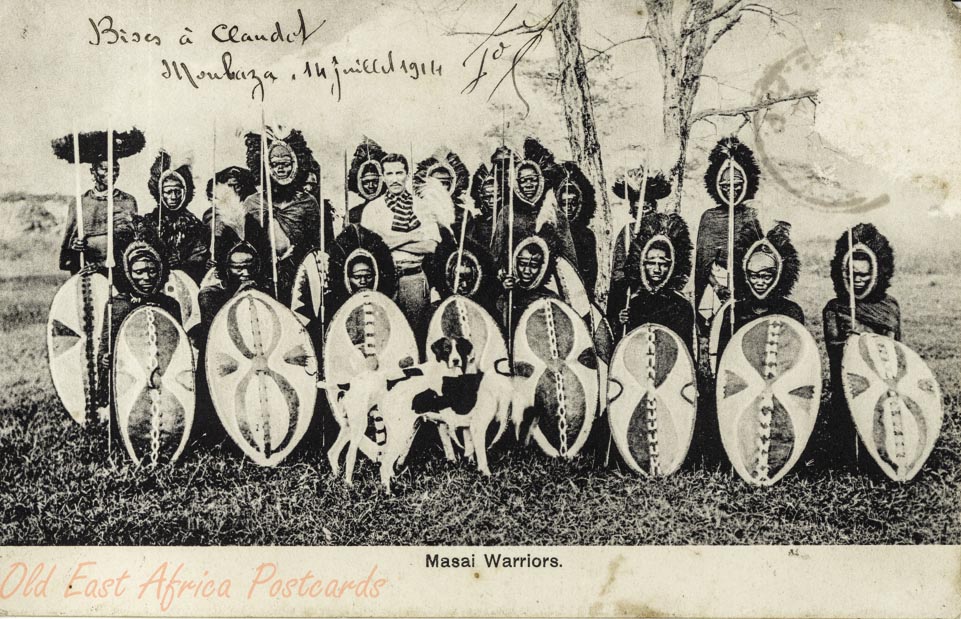 Bises à Claudet
Moubaza, 14 juillet 1914
Masai Warriors.
Old East Africa Postcards